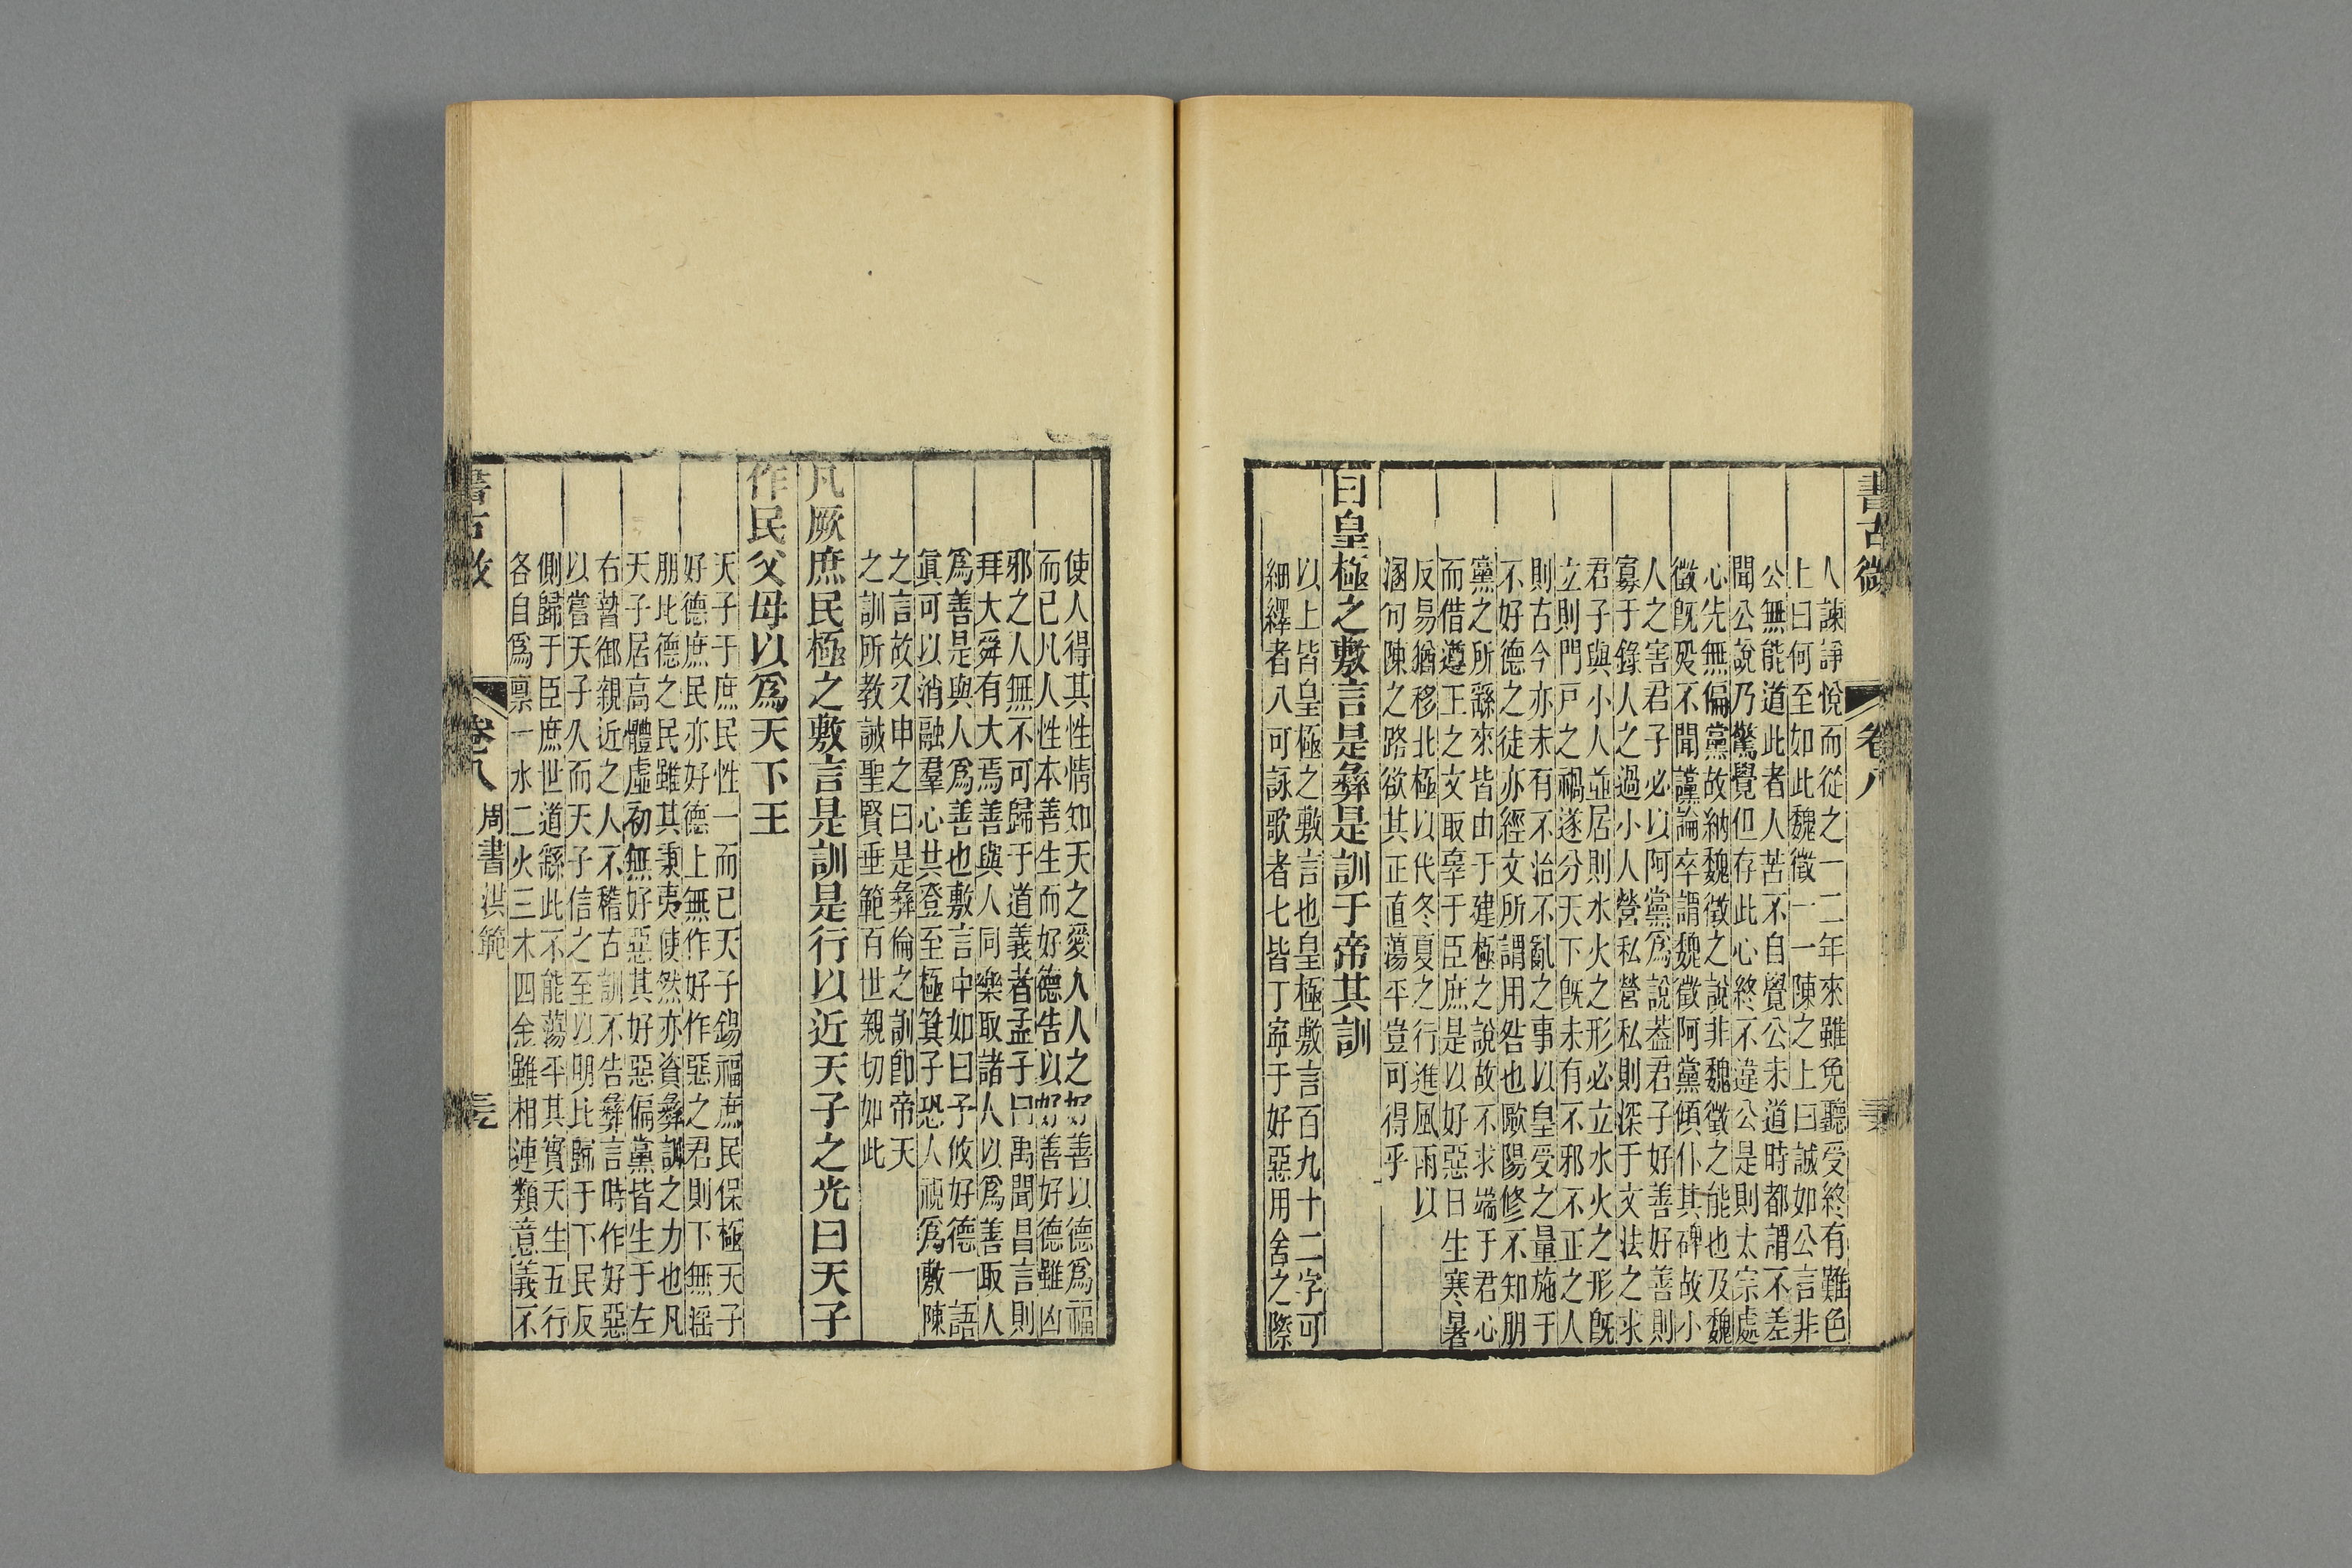 書古微
卷八
人諫諍悅而從之一二年來雖免聽受終有難色
上曰何至如此魏徵一一陳之上曰誠如公言非
公無能道此者人苦不自覺公未道時都謂不差
聞公說乃驚覺但存此心終不違公是則太宗處
心先無偏黨故納魏徵之說非魏徵之能也及魏
徵旣歿不聞讜論卒謂魏徵阿黨傾仆其碑故小
人之害君子必以阿黨爲說葢君子好善好善則
寡于錄人之過小人營私營私則深于文法之求
君子與小人並居則水火之形必立水火之形旣
立則門戸之禍遂分天下旣未有不邪不正之人
則古今亦未有不治不亂之事以皇受之量施于
不好德之徒亦經文所謂用咎也歐陽修不知朋
黨之所繇來皆由于建極之說故不求端于君心
而借遵王之文取辜于臣庶是以好惡日生寒暑
反易猶移北極以代冬夏之行進風雨以
溷句陳之路欲其正直蕩平豈可得乎
曰皇極之敷言是彝是訓于帝其訓
以上皆皇極之敷言也皇極敷言百九十二字可
細繹者八可詠歌者七皆丁寧于好惡用舍之際
使人得其性情知天之愛人人之好善以德爲福
而已凡人性本善生而好德告以好善好德雖凶
邪之人無不可歸于道義者孟子曰禹聞昌言則
拜大舜有大焉善與人同樂取諸人以爲善取人
爲善是與人爲善也敷言中如曰予攸好德一語
眞可以消融羣心共登至極箕子恐人視爲敷陳
之言故又申之曰是彝倫之訓卽帝天
之訓所教誡聖賢垂範百世親切如此
凡厥庶民極之敷言是訓是行以近天子之光曰天子
作民父母以爲天下王
天子于庶民性一而已天子錫福庶民保極天子
好德庶民亦好德上無作好作惡之君則下無淫
朋比德之民雖其秉夷使然亦資彝訓之力也凡
天子居高體虛初無好惡其好惡偏黨皆生于左
右暬御親近之人不稽古訓不告彝言時作好惡
以嘗天子久而天子信之至以明比歸于下民反
側歸于臣庶世道繇此不能蕩平其實天生五行
各自爲稟一水二火三木四金雖相連類意義不
書古微
卷八
周書洪範